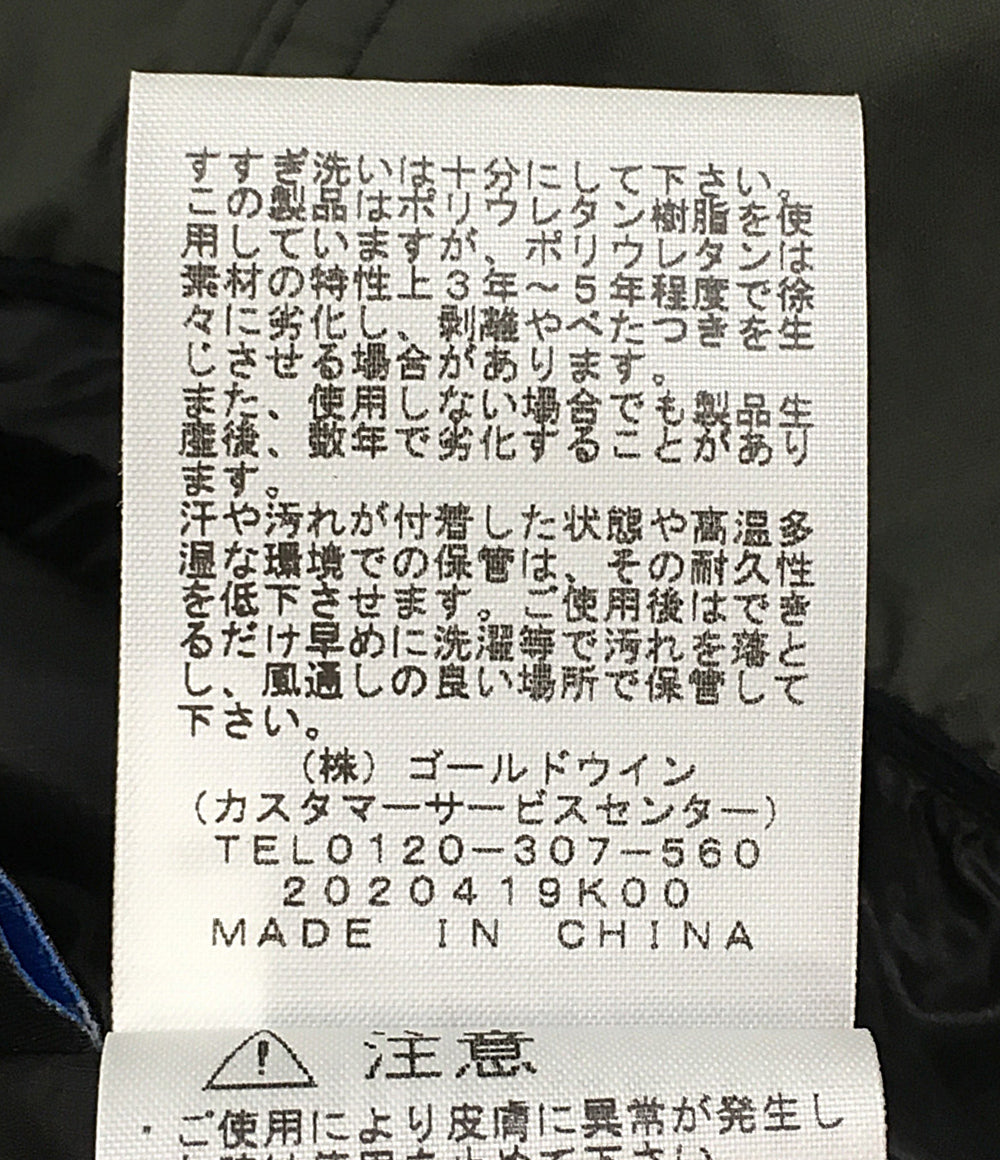 すすぎ洗いは十分にして下さい。
この製品はポリウレタン樹脂を使
用していますが、ポリウレタンは
素材の特性上3年～5年程度で徐
々に劣化し、剥離やべたつきを生
じさせる場合があります。
また、使用しない場合でも製品生
産後、数年で劣化することがあり
ます。
汗や汚れが付着した状態や高温多
湿な環境での保管は、その耐久性
を低下させます。ご使用後はでき
るだけ早めに洗濯等で汚れを落と
し、風通しの良い場所で保管して
下さい。
(株) ゴールドウイン
(カスタマーサービスセンター)
TEL0120-307-560
2020419K00
MADE IN CHINA
注意
・ご使用により皮膚に異常が発生し